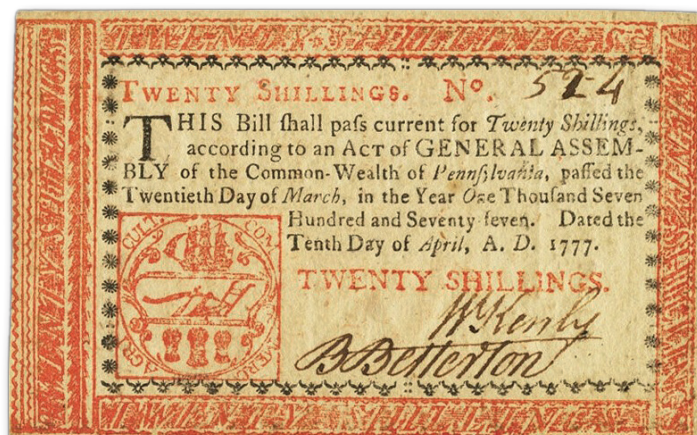 TWENTY SHILLINGS
TWENTY SHILLINGS
TWENTY SHILLINGS. No. 524
THIS Bill ſhall paſs current for Twenty Shillings,
according to an ACT of GENERAL ASSEM-
BLY of the Common-Wealth of Pennſilvania, paſſed the
Twentieth Day of March, in the Year One Thouſand Seven
Hundred and Seventy-ſeven. Dated the
Tenth Day of April, A. D. 1777.
TWENTY SHILLINGS.
B Betterton
TWENTY SHILLINGS